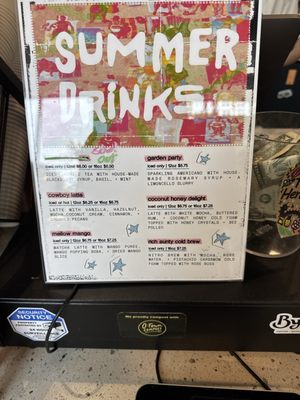 SUMMER
DRINKS
Sold
Out
iced only | 12oz $6.00 or 16oz $6.50
ICED TEA WITH HOUSE-MADE
SYRUP, BASIL, + MINT
cowboy latte
iced or hot | 12oz $6.25 or 16oz $6.75
LATTE WITH VANILLA, HAZELNUT,
MOCHA, COCONUT CREAM, CINNAMON, +
PECANS
mellow mango
iced only | 12oz $6.75 or 16oz $7.25
MATCHA LATTE WITH MANGO PUREE,
MANGO POPPING BOBA, + DRIED MANGO
SLICE
garden party
iced only | 12oz $6.75
SPARKLING AMERICANO WITH HOUSE
MADE ROSEMARY SYRUP + A
LIMONCELLO SLURRY
coconut honey delight
iced only | 12oz $6.75 or 16oz $7.25
LATTE WITH WHITE MOCHA, BUTTERED
RUM, + COCONUT HONEY COLD FOAM
TOPPED WITH HONEY CRYSTALS + BEE
POLLEN
rich aunty cold brew
iced only | 12oz $7.25
NITRO BREW WITH MOCHA, ROSE
WATER, + PISTACHIO CARDAMOM COLD
FOAM TOPPED WITH ROSE BUDS
SECURITY
NOTICE
PROPERTY
PROTECTED BY
24 HOUR
SURVEILLANCE
We proudly compost with
O-Town
COMPOST